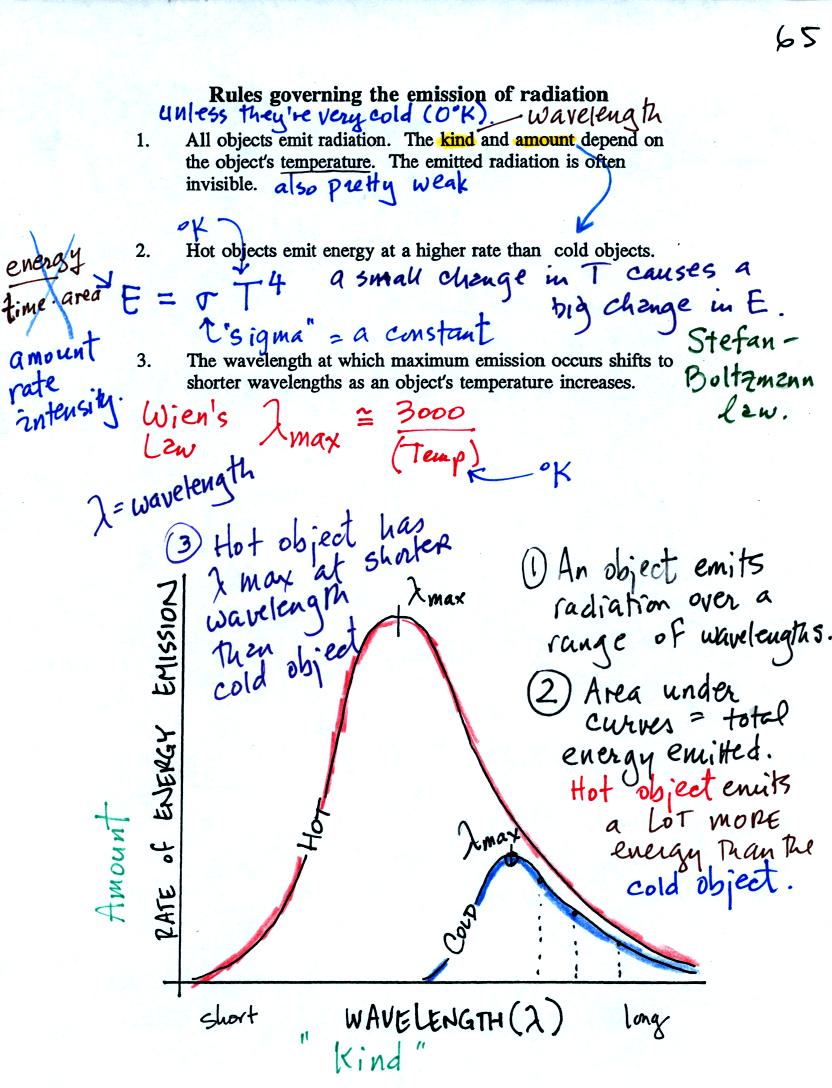 65
Rules governing the emission of radiation
unless they're very cold (0°K).
wavelength
1. All objects emit radiation. The kind and amount depend on
the object's temperature. The emitted radiation is often
invisible. also pretty weak
°K
2. Hot objects emit energy at a higher rate than cold objects.
energy
time · area
E = σ T4
a small change in T causes a
big change in E.
"sigma" = a constant
amount
rate
intensity.
Stefan-
Boltzmann
law.
3. The wavelength at which maximum emission occurs shifts to
shorter wavelengths as an object's temperature increases.
Wien's
Law
λmax ≅ 3000
(Temp)
°K
λ = wavelength
③ Hot object has
λ max at shorter
wavelength
than
cold object
λmax
① An object emits
radiation over a
range of wavelengths.
② Area under
curves = total
energy emitted.
Hot object emits
a LOT MORE
energy than the
cold object.
Amount
RATE of ENERGY EMISSION
HOT
λmax
COLD
short
WAVELENGTH (λ)
long
"Kind"